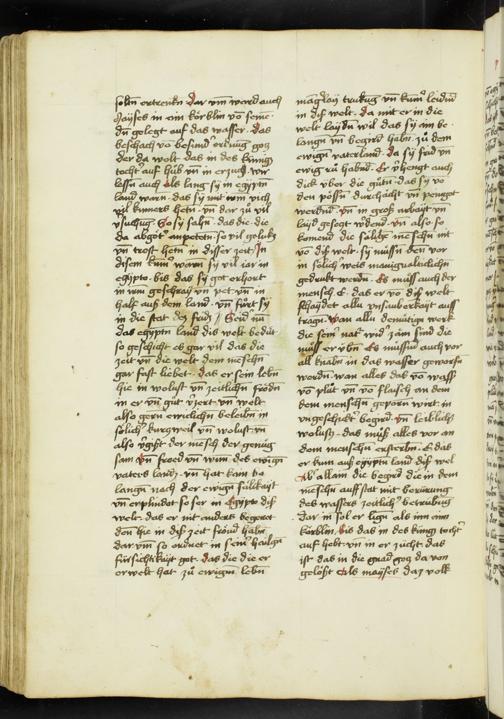 solten ertrenken dar vm̄ ward auch
Mayses in ein körblin vō seine
dn̄ gelegt auf das wasser. Das
beschach vō besund ordnūg gotz
der da wolt das in des künigs
tocht auf hüb vn̄ in erzug. wir
lessn̄ auch als lang sy in egyptn̄
land warn. das sy mit vich
vil kumers hetn̄ vn̄ dar zu vil
So sy sahn̄. das die die
da abgot anpetetn̄ so vil gelukß
vn̄ trost hetn̄ in disser zeit. In
disem kum̄ warn̄ sy vil iar in
egipto. bis das sy got erhort
in irm geschray vn̄ pet vn̄ in
half aus dem land. vn̄ fürt sy
in die stat dez fridz / Seid nū
das egyptn̄ land dis welt bedüt.
so geschicht es gar vil das die
zeit vn̄ die welt dem menschn̄
gar fast liebet. das er sein lebn̄
hie in wolust vn̄ zeitlichn̄ frödn̄
in er vn̄ gut vzert vn̄ welt
also gern ewiclichn̄ beleibn̄ in
sölich kurzweil vn̄ wolust vn̄
also vgist der mēsch der genüg
sam vn̄ froed vn̄ wun. des ewign̄
vaters landz. vn̄ hat kain ba
langn̄ nach der ewign̄ sälikayt
vn̄ erplindet so ser in Egipto diß
welt. das er nit anders begeret
den hie in diß zeit freind habn̄
dar vm̄ so ordnet in sein hailgn̄
fürsichtikayt got. das die die er
erwelt hat zu ewigm̄ lebn̄
manglay trubnūß vn̄ kum̄ leidn̄
in diß welt. da mit er in die
welt laydn̄ wil das sy ain be
langn̄ vn̄ begird habn̄ zu dem
ewign̄ vaterland. da sy frid vn̄
ewig ru habnd. Er vhengt auch
dick über die gutn̄ das sy vō
den pösn̄ durchächt vn̄ gepeingot
werdnd. vn̄ in groß arbait vn̄
layd gesezt wdent. vn̄ also
komend die sälige mēschn̄ nit
vō diß welt. sy müsn̄ den vor
in solich weis manigualticlichn̄
gedrukt werdn̄. Es müß auch der
mensch E. das er vō diß welt
schaydet alln̄ vnsauberkayt auß
tragn̄. Wan alln̄ demütige werk
die sein nāt wid' zäm sind die
müß er vbn̄. Es müssen auch vor
all knabn̄ in das wasser geworfn̄
werdn̄. wan alles das vō wasß
vō plut vn̄ vō flaisch an dem
dem menschn̄ geporn wirt. in
vngeschikt begird vn̄ leiblich
wolust. das müß alles vor an
dem menschn̄ ersterbn̄. E das
er kum auß egyptn̄ land diß wel
Ab allain die begird die in dem
menschn̄ auff stat mit berürung
des wassers zeitlich betrübūß
Dar in sol er lign̄ als inn aim
körblin. bis das in des künigs tocht'
auf hebt vn̄ in er zücht. das
ist das in die gnad gotz da von
gelößt Als mayses daz volk